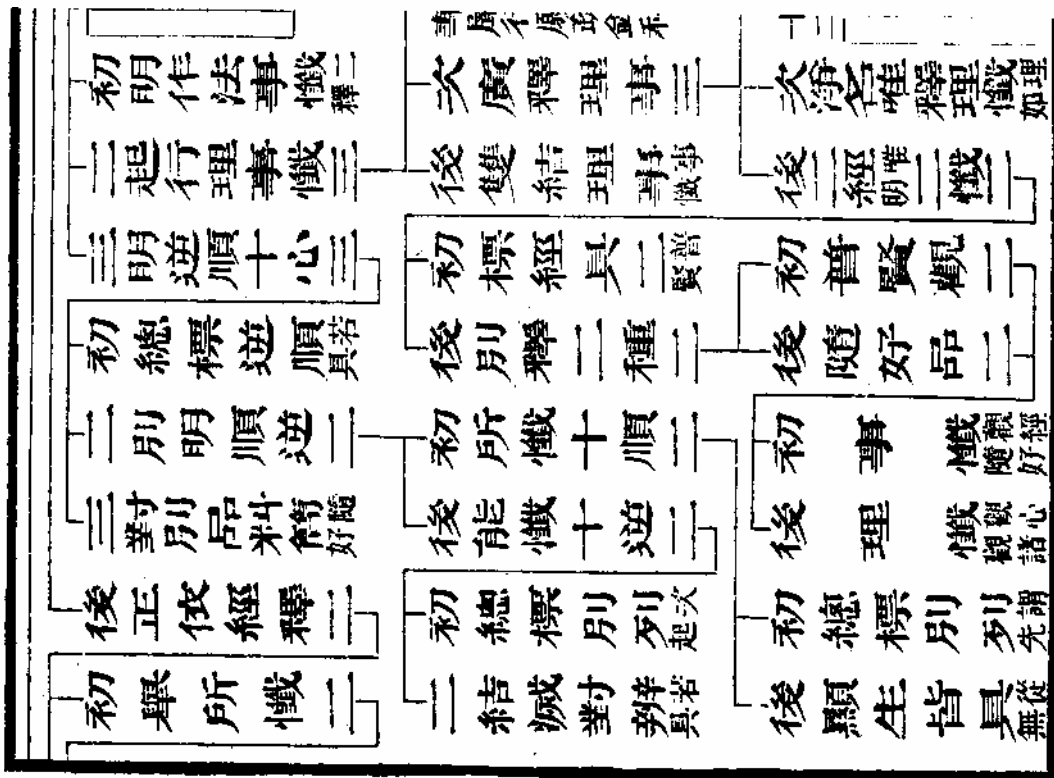 初明作法事懺釋二
二起行理事懺三
三明逆順十心三
初總標逆順具若
二別明順逆二
三對別品料簡好隨
後正依經釋二
初舉所懺二
次廣釋理事三
後雙結理事懺事
初標經具二賢普
後別釋二種二
初所懺十順二
後能懺十逆二
初總標別列起次
二結滅對辨具若
次淨名唯釋理懺如理
後二經明唯二懺
初普賢觀二
後隨好品二
初事懺隨觀好經
後理懺觀觀諸心
初總標別列先謂
後顯生皆具無從